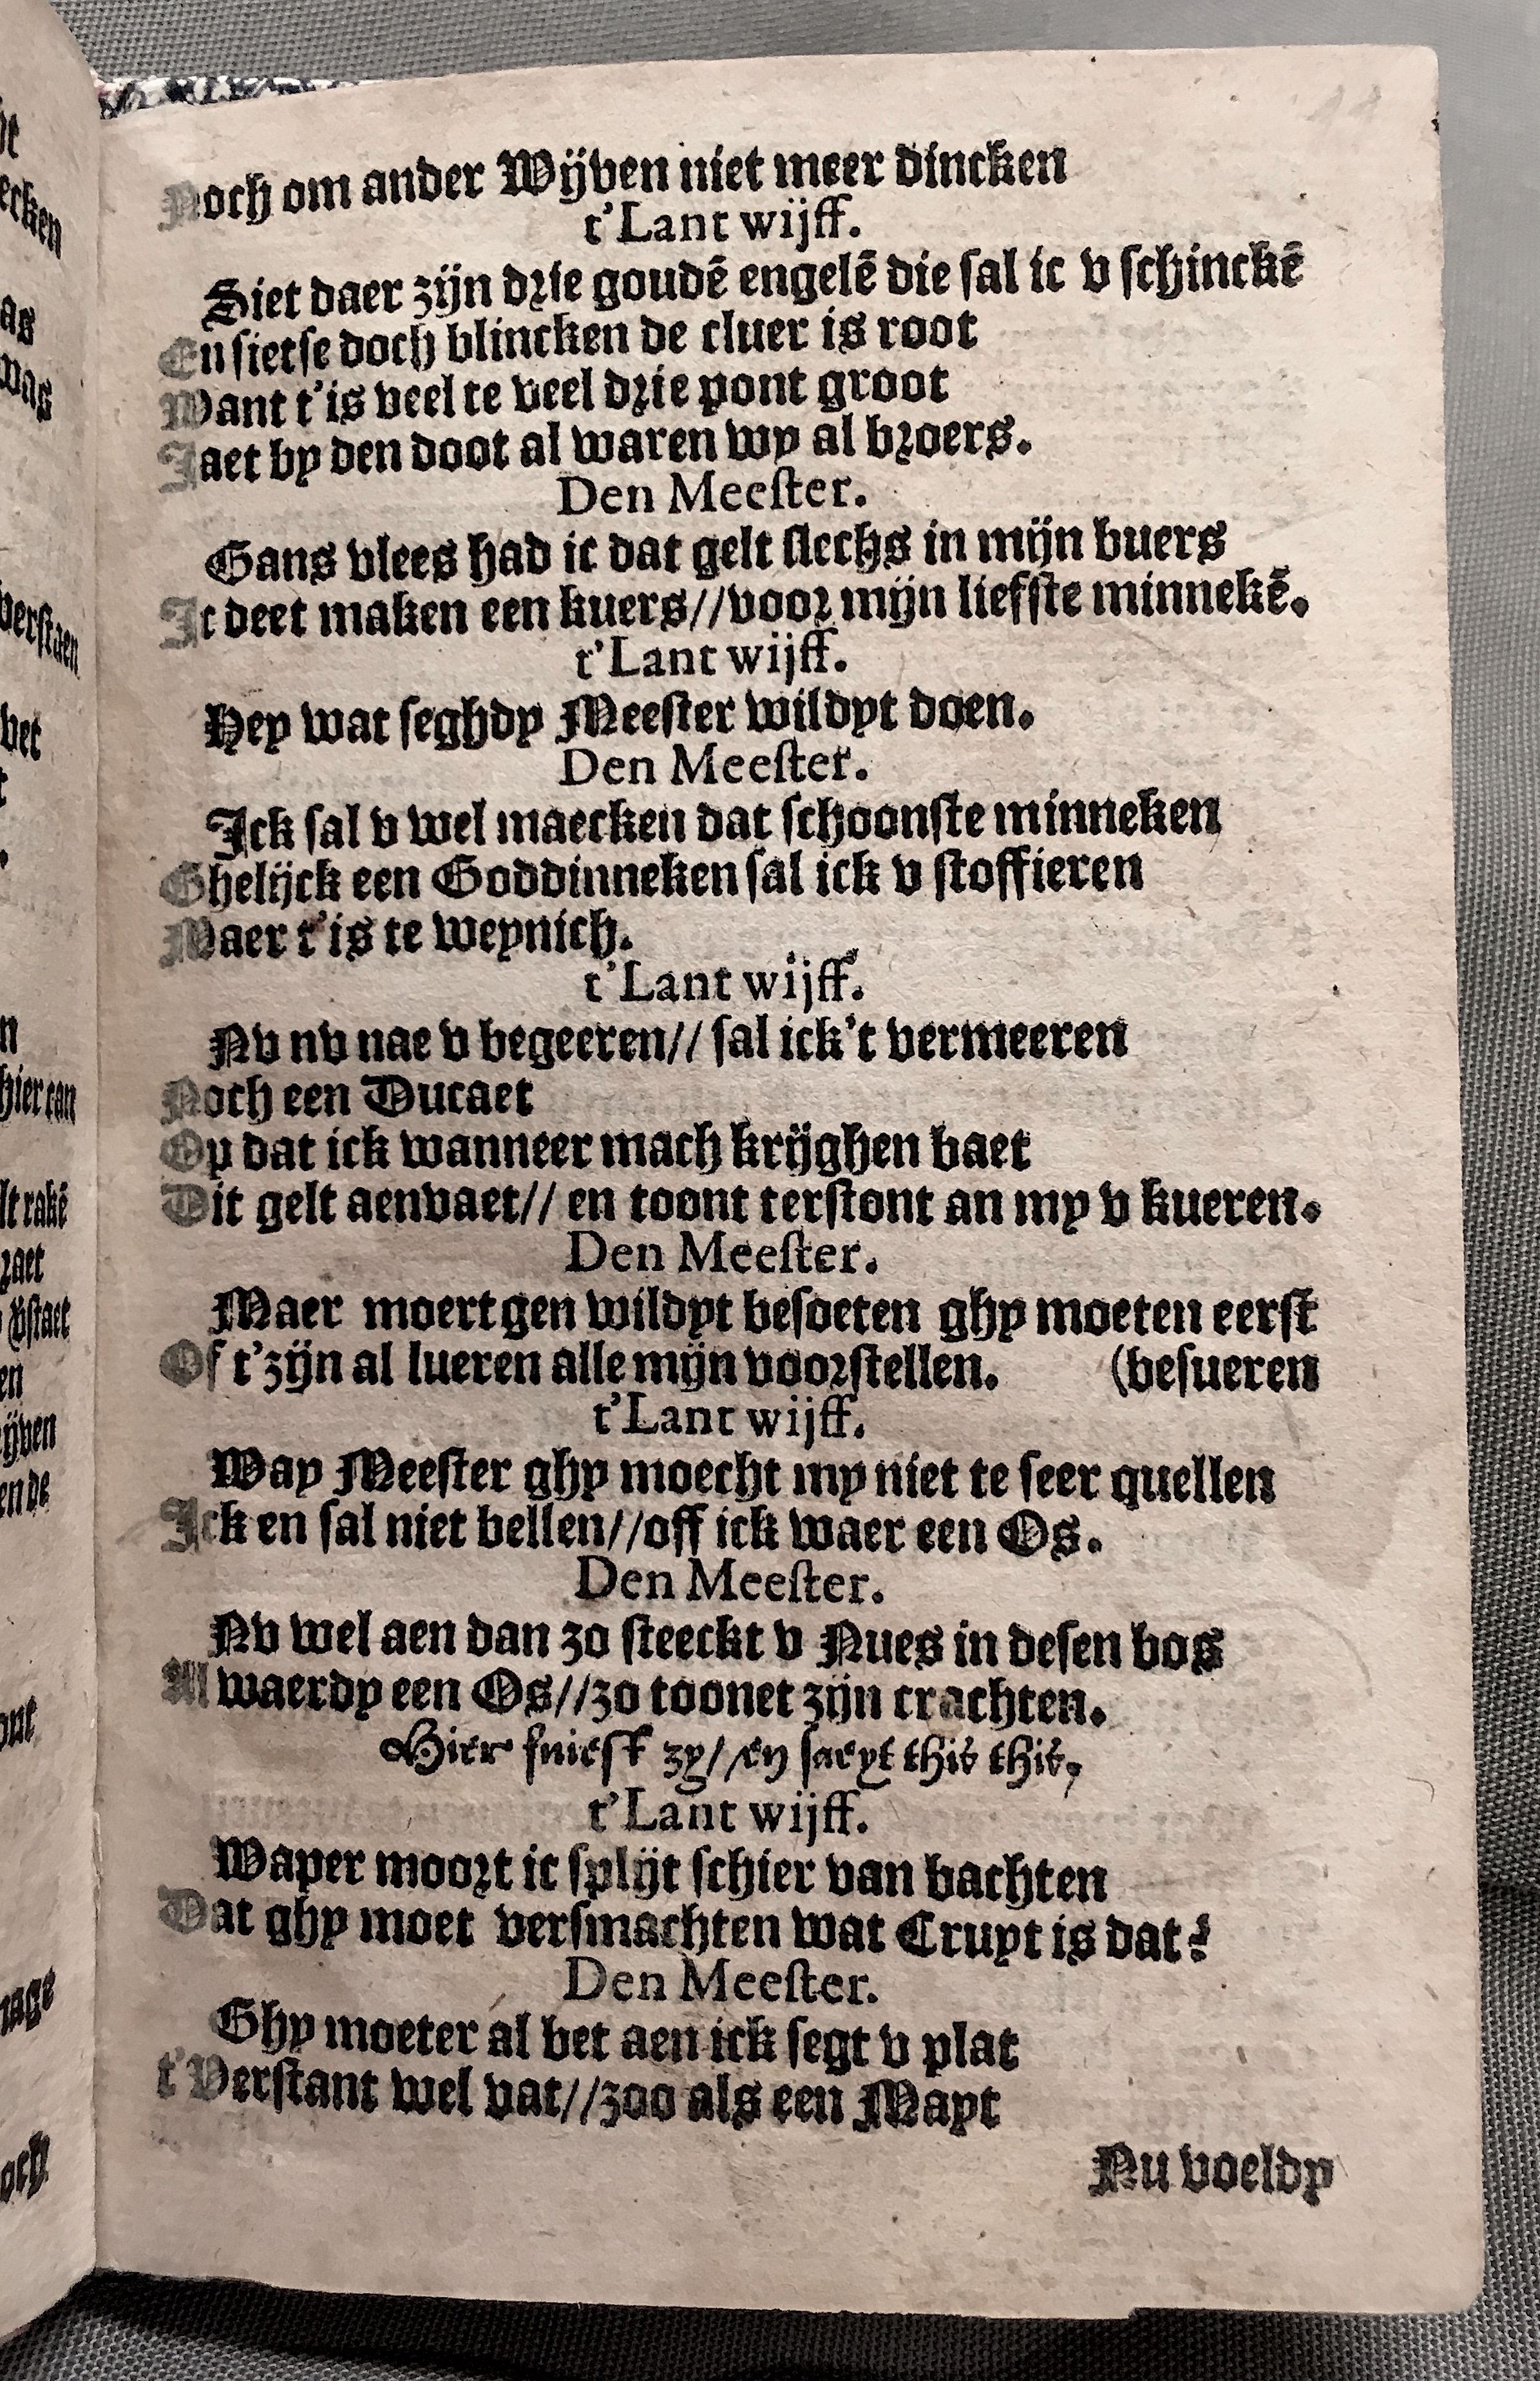 Noch om ander Wijven niet meer dincken
t'Lant wijff.
Siet daer zijn drie goudē engelē die sal ic v schinckē
En sietse doch blincken de cluer is root
Want t'is veel te veel drie pont groot
Jaet by den doot al waren wy al broers.
Den Meester.
Gans vlees had ic dat gelt slechs in mijn buers
Ic deet maken een kuers//voor mijn liefste minnekē.
t'Lant wijff.
Hey wat seghdy Meester wildyt doen.
Den Meester.
Ick sal v wel maecken dat schoonste minneken
Ghelijck een Goddinneken sal ick v stoffieren
Maer t'is te weynich.
t'Lant wijff.
Nv nv nae v begeeren// sal ick't vermeeren
Noch een Ducaet
Op dat ick wanneer mach krijghen baet
Dit gelt aenvaet// en toont terstont an my v kueren.
Den Meester.
Maer moertgen wildyt besoeten ghy moeten eerst
Of t'zijn al lueren alle mijn voorstellen. (besueren
t'Lant wijff.
Way Meester ghy moecht my niet te seer quellen
Ick en sal niet bellen//off ick waer een Os.
Den Meester.
Nv wel aen dan zo steeckt v Nues in desen bos
Al waerdy een Os//zo toonet zijn crachten.
Hier sniest zy//en saeyt this this,
t'Lant wijff.
Waper moort ic splijt schier van bachten
Dat ghy moet versmachten wat Cruyt is dat?
Den Meester.
Ghy moeter al bet aen ick segt v plat
t'Verstant wel vat//zoo als een Mayt
Nu voeldy